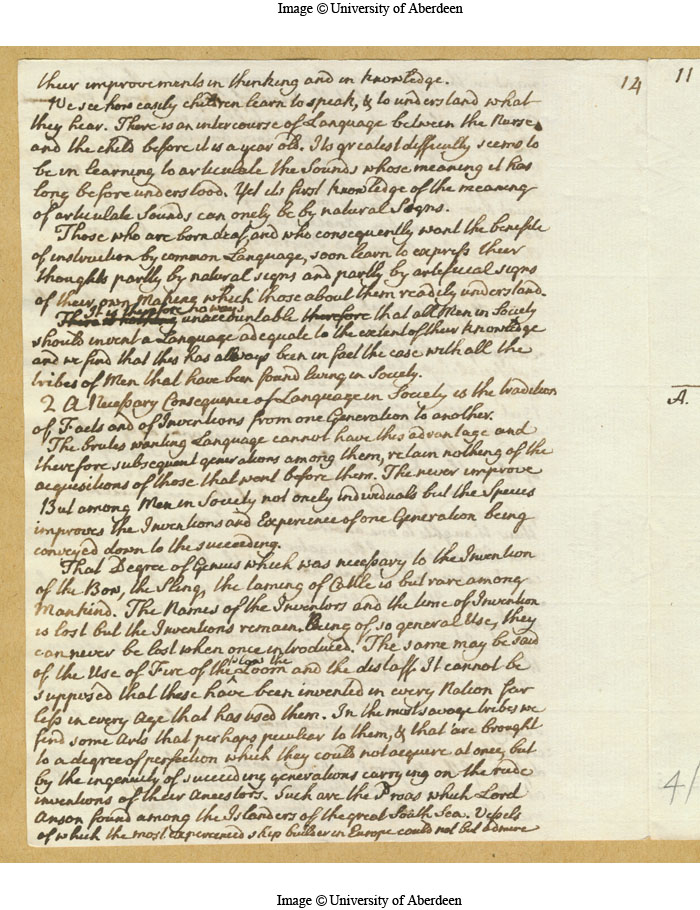 Image © University of Aberdeen
their improvements in thinking and in knowledge.
We see how easily children learn to speak, & to understand what
they hear. There is an intercourse of Language between the Nurse
and the child before it is a year old. Its greatest difficulty seems to
be in learning to articulate the Sounds whose meaning it has
long before understood. Yet its first knowledge of the meaning
of articulate Sounds can onely be by natural Signs.
Those who are born deaf, and who consequently want the benefite
of instruction by common Language, soon learn to express their
thoughts partly by natural signs and partly by artificial signs
of their own Making which those about them readily understand.
It is therefore no ways
There is nothing unaccountable therefore that all Men in Society
should invent a Language adequate to the extent of their knowledge
and we find that this has always been in fact the case with all the
tribes of Men that have been found living in Society.
2 A Necessary Consequence of Language in Society is the tradition
of Facts and of Inventions from one Generation to another.
The brutes wanting Language cannot have this advantage and
therefore subsequent generations among them, retain nothing of the
acquisitions of those that went before them. The never improve
But among Men in Society not onely individuals but the Species
improves the Inventions and Experience of one Generation being
conveyed down to the succeeding.
That Degree of Genius which was necessary to the Invention
of the Bow, the Sling, the taming of Cattle is but rare among
Mankind. The Names of the Inventors and the time of Invention
is lost but the Inventions remain. Being of so general Use, they
can never be lost when once introduced. The same may be said
of the Use of Fire of the Loom and the distaff. It cannot be
supposed that these have been invented in every Nation far
less in every Age that has used them. In the most savage tribes we
find some Arts that perhaps peculiar to them, & that are brought
to a degree of perfection which they could not acquire at once, but
by the ingenuity of succeeding generations carrying on the rude
inventions of their Ancestors. Such are the Proas which Lord
Anson found among the Islanders of the great South Sea. Vessels
of which the most experienced ship builder in Europe could not but admire
14
11
A.
4/
Image © University of Aberdeen